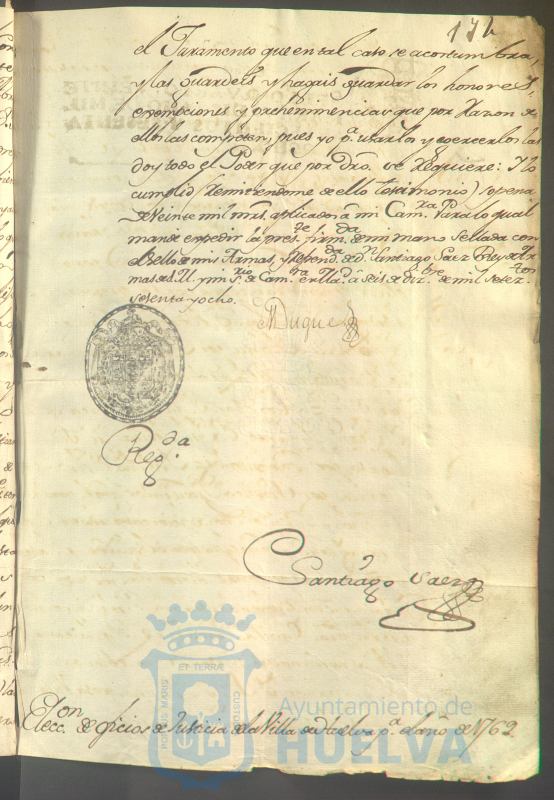 172
el Juramento que en tal caso se acostumbra,
y las guardeis, y hagais guardar los honores,
exempciones y preheminencias que por razon de
ellos las competen, pues yo pª. usarlos y exercerlos las
doy todo el Poder que por Dro. se requiere: Y lo
cumplid (remitiendome de ello testimonio) so pena
de veinte mil mrs. aplicados á mi Camrª. Para lo qual
mande expedir la presᵗᵉ. firmᵈᵃ. de mi mano sellada con
el sello de mis Armas, y refrendᵈᵃ. de Dⁿ. Santiago Saez Rey de Ar
mas de S. M. y mi Sʳⁱᵒ. de Camʳᵃ. en Mad. á seis de Dizʳᵉ. de mil setez.ᵗᵒˢ
sesenta y ocho.
El Duque
Regᵈᵃ.
Santiago Saez
Elecc.ᵒⁿ de oficios de Justicia de la Villa de Huelva pª. el año de 1769.
PORTUS MARIS ET TERRÆ CUSTODIA
Ayuntamiento de
HUELVA